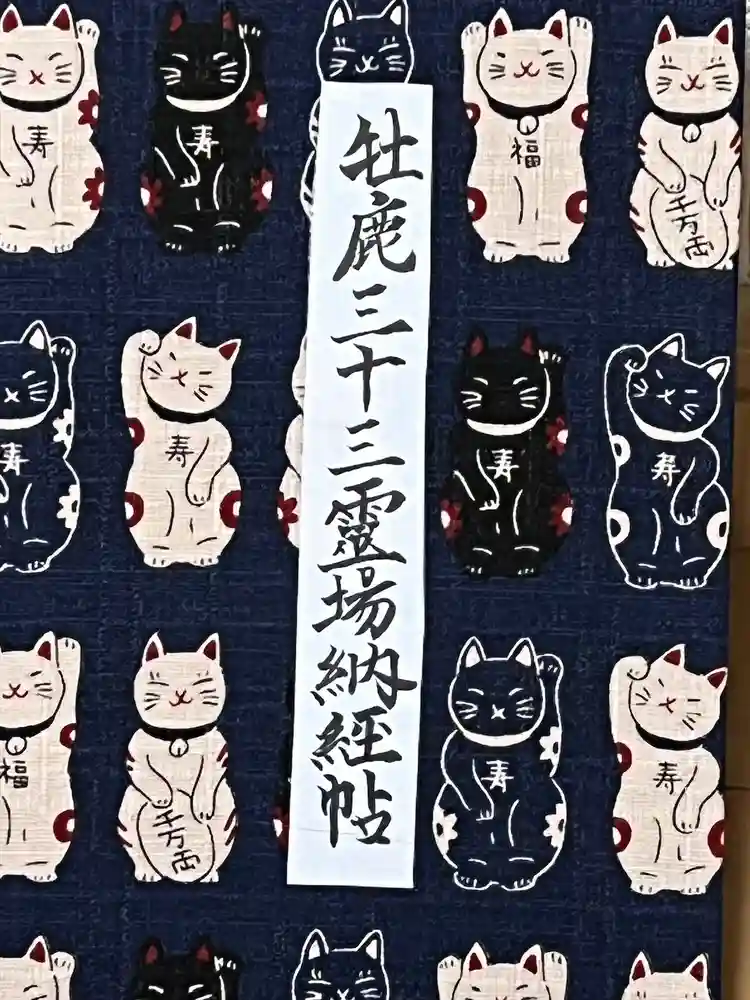 寿
寿
福
千万両
牡鹿三十三霊場納経帖
寿
寿
寿
寿
福
千万両
寿
寿